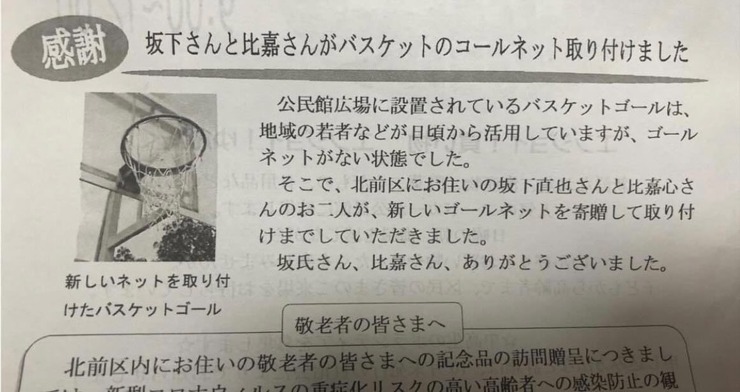 感謝
坂下さんと比嘉さんがバスケットのコールネット取り付けました
公民館広場に設置されているバスケットゴールは、
地域の若者などが日頃から活用していますが、ゴール
ネットがない状態でした。
そこで、北前区にお住いの坂下直也さんと比嘉心さ
んのお二人が、新しいゴールネットを寄贈して取り付
けまでしていただきました。
坂氏さん、比嘉さん、ありがとうございました。
新しいネットを取り付
けたバスケットゴール
敬老者の皆さまへ
北前区内にお住いの敬老者の皆さまへの記念品の訪問贈呈につきまし
ては、新型コロナウィルスの重症化リスクの高い高齢者への感染防止の観